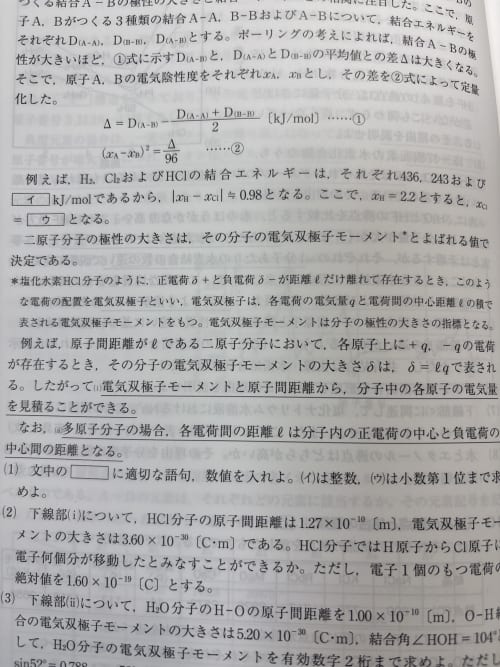 つくる結合の極性の大きさと
子A，Bがつくる3種類の結合A-A，B-BおよびA-Bについて，結合エネルギーを
それぞれD(A-A)，D(B-B)，D(A-B)とする。ポーリングの考えによれば，結合A-Bの極
性が大きいほど，①式に示すD(A-B)と，D(A-A)とD(B-B)の平均値との差Δは大きくなる。
そこで，原子A，Bの電気陰性度をそれぞれxA，xBとし，その差を②式によって定量
化した。
Δ = D(A-B) - (D(A-A) + D(B-B))/2 〔kJ/mol〕 ……①
(xA-xB)² = Δ/96 ……②
例えば，H₂，Cl₂およびHClの結合エネルギーは，それぞれ436，243および
イ kJ/molであるから，|xH-xCl|≒0.98となる。ここで，xH=2.2とすると，xCl
= ウ となる。
二原子分子の極性の大きさは，その分子の電気双極子モーメント*とよばれる値で
決定である。
*塩化水素HCl分子のように，正電荷δ+と負電荷δ-が距離ℓだけ離れて存在するとき，このよう
な電荷の配置を電気双極子といい，電気双極子は，各電荷の電気量qと電荷間の中心距離ℓの積で
表される電気双極子モーメントをもつ。電気双極子モーメントは分子の極性の大きさの指標となる。
例えば，原子間距離がℓである二原子分子において，各原子上に+q，-qの電荷
が存在するとき，その分子の電気双極子モーメントの大きさδは，δ=ℓqで表され
る。したがって(i)電気双極子モーメントと原子間距離から，分子中の各原子の電気量
を見積ることができる。
なお，多原子分子の場合，各電荷間の距離ℓは分子内の正電荷の中心と負電荷の
中心間の距離となる。
(1) 文中の□に適切な語句，数値を入れよ。(イ)は整数，(ウ)は小数第1位まで求
めよ。
(2) 下線部(i)について，HCl分子の原子間距離は1.27×10⁻¹⁰〔m〕，電気双極子モー
メントの大きさは3.60×10⁻³⁰〔C・m〕である。HCl分子ではH原子からCl原子に
電子何個分が移動したとみなすことができるか。ただし，電子1個のもつ電荷の
絶対値を1.60×10⁻¹⁹〔C〕とする。
(3) 下線部(ii)について，H₂O分子のH-Oの原子間距離を1.00×10⁻¹⁰〔m〕，O-H結
合の電気双極子モーメントの大きさは5.20×10⁻³⁰〔C・m〕，結合角∠HOH=104°
して，H₂O分子の電気双極子モーメントを有効数字2桁まで求めよ。ただし
sin52°=0.788